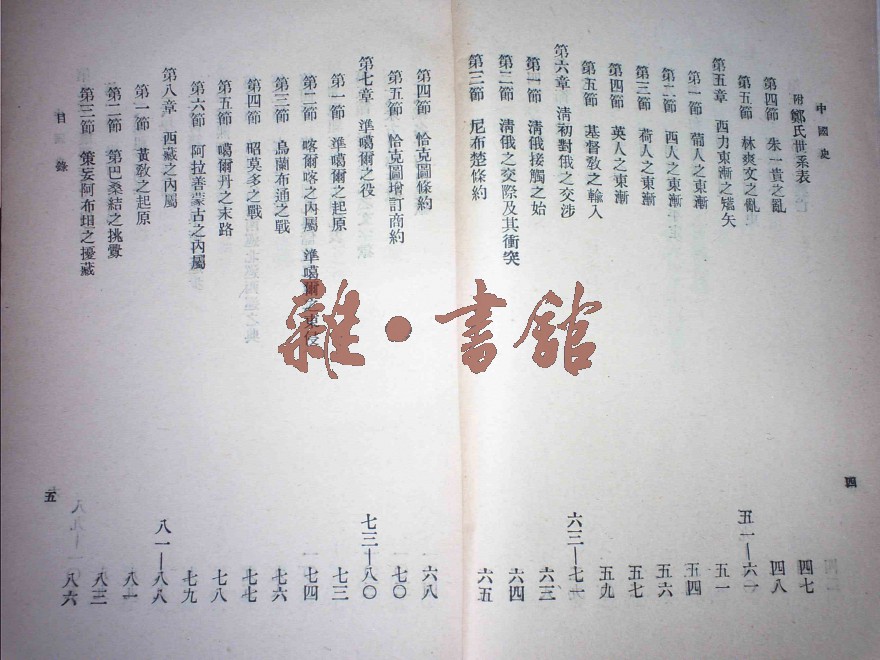 中國史
四
附鄭氏世系表 四七
第四節 朱一貴之亂 四八
第五節 林爽文之亂 五一
第五章 西力東漸之嚆矢 五一—六一
第一節 葡人之東漸 五四
第二節 西人之東漸 五六
第三節 荷人之東漸 五七
第四節 英人之東漸 五九
第五節 基督敎之輸入
第六章 淸初對俄之交涉 六三—七一
第一節 淸俄接觸之始 六三
第二節 淸俄之交際及其衝突 六四
第三節 尼布楚條約 六五
第四節 恰克圖條約 六八
第五節 恰克圖增訂商約 七〇
第七章 準噶爾之役 七三—八〇
第一節 準噶爾之起原 七三
第二節 喀爾喀之內屬 準噶爾之東侵 七四
第三節 烏蘭布通之戰 七六
第四節 昭莫多之戰 七七
第五節 噶爾丹之末路 七八
第六節 阿拉善蒙古之內屬 七九
第八章 西藏之內屬 八一—八八
第一節 黃敎之起原 八一
第二節 第巴桑結之挑釁 八三
第三節 策妄阿布坦之擾藏 八六
目錄
五
雜·書館